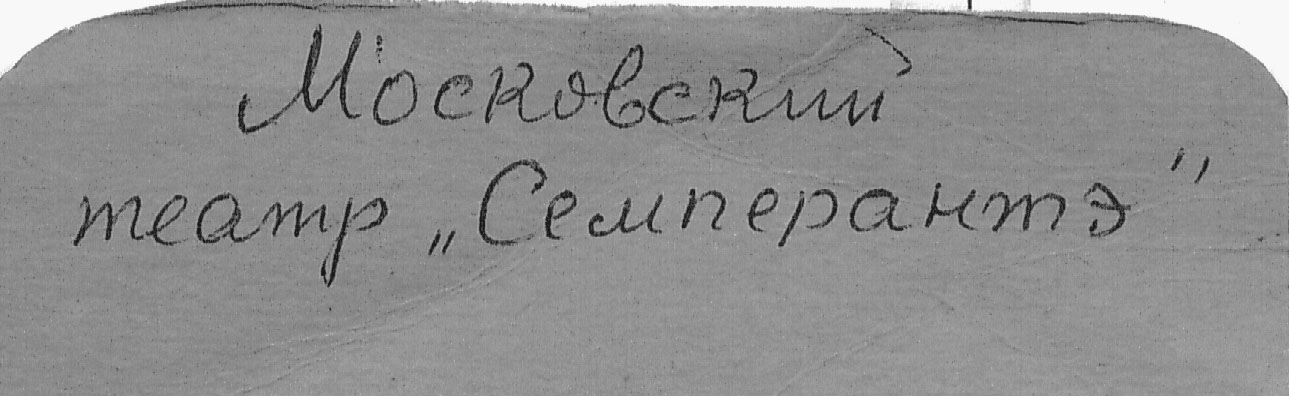 Московский
театр „Семперантэ"